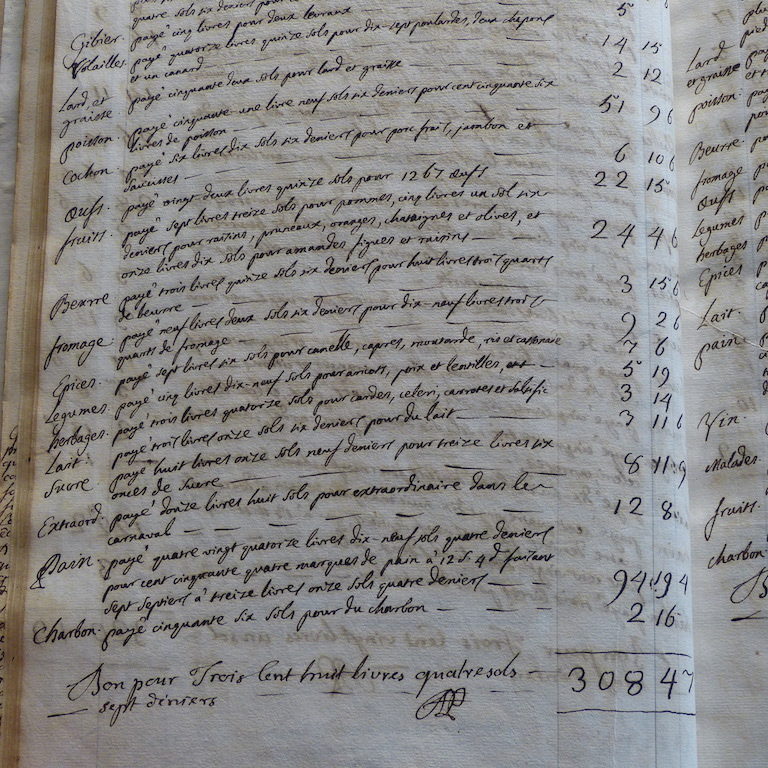 quatre sols six deniers pour
Gibier. payé cinq livres pour deux levraux 5
Volailles. payé quatorze livres quinze sols pour dix-sept poulardes, deux chapons
et un canard 14 15
Lard, et payé cinquante deux sols pour lard et graisse 2 12
graisse
poisson. payé cinquante-une livre neuf sols six deniers pour cent cinquante six
livres de poisson 51 9 6
Cochon. payé six livres dix sols six deniers pour porc frais, jambon et
saucisses 6 10 6
Œufs. payé vingt deux livres quinze sols pour 1267 œufs 22 15
fruits. payé sept livres treize sols pour pommes, cinq livres un sol six
deniers pour raisins, pruneaux, oranges, chataignes et olives, et
onze livres dix sols pour amandes figues et raisins 24 4 6
Beurre payé trois livres quinze sols six deniers pour huit livres trois quarts
de beurre 3 15 6
fromage. payé neuf livres deux sols six deniers pour dix-neuf livres trois
quarts de fromage 9 2 6
Epices. payé sept livres six sols pour canelle, capres, moutarde, ris et cassonade 7 6
Legumes. payé cinq livres dix-neuf sols pour aricots, poix et lentilles 5 19
herbages. payé trois livres quatorze sols pour cardes, celeri, carrotes et salsific 3 14
Lait. payé trois livres onze sols six deniers pour du lait 3 11 6
Sucre payé huit livres onze sols neuf deniers pour treize livres six
onces de sucre 8 11 9
Extraord. payé douze livres huit sols pour extraordinaire dans le
carnaval 12 8
Pain. payé quatre vingt quatorze livres dix-neuf sols quatre deniers
pour cent cinquante quatre marques de pain à 12 s. 4 d. faisant
sept septiers à treize livres onze sols quatre deniers 94 19 4
Charbon. payé cinquante six sols pour du charbon 2 16
Bon pour Trois Cent huit livres quatre sols 308 4 7
sept deniers
Lard
et graisse
poisson.
Beurre.
fromage
Œufs
Legumes
herbages
Epices
Lait.
pain
Vin.
Malades.
fruits.
charbon